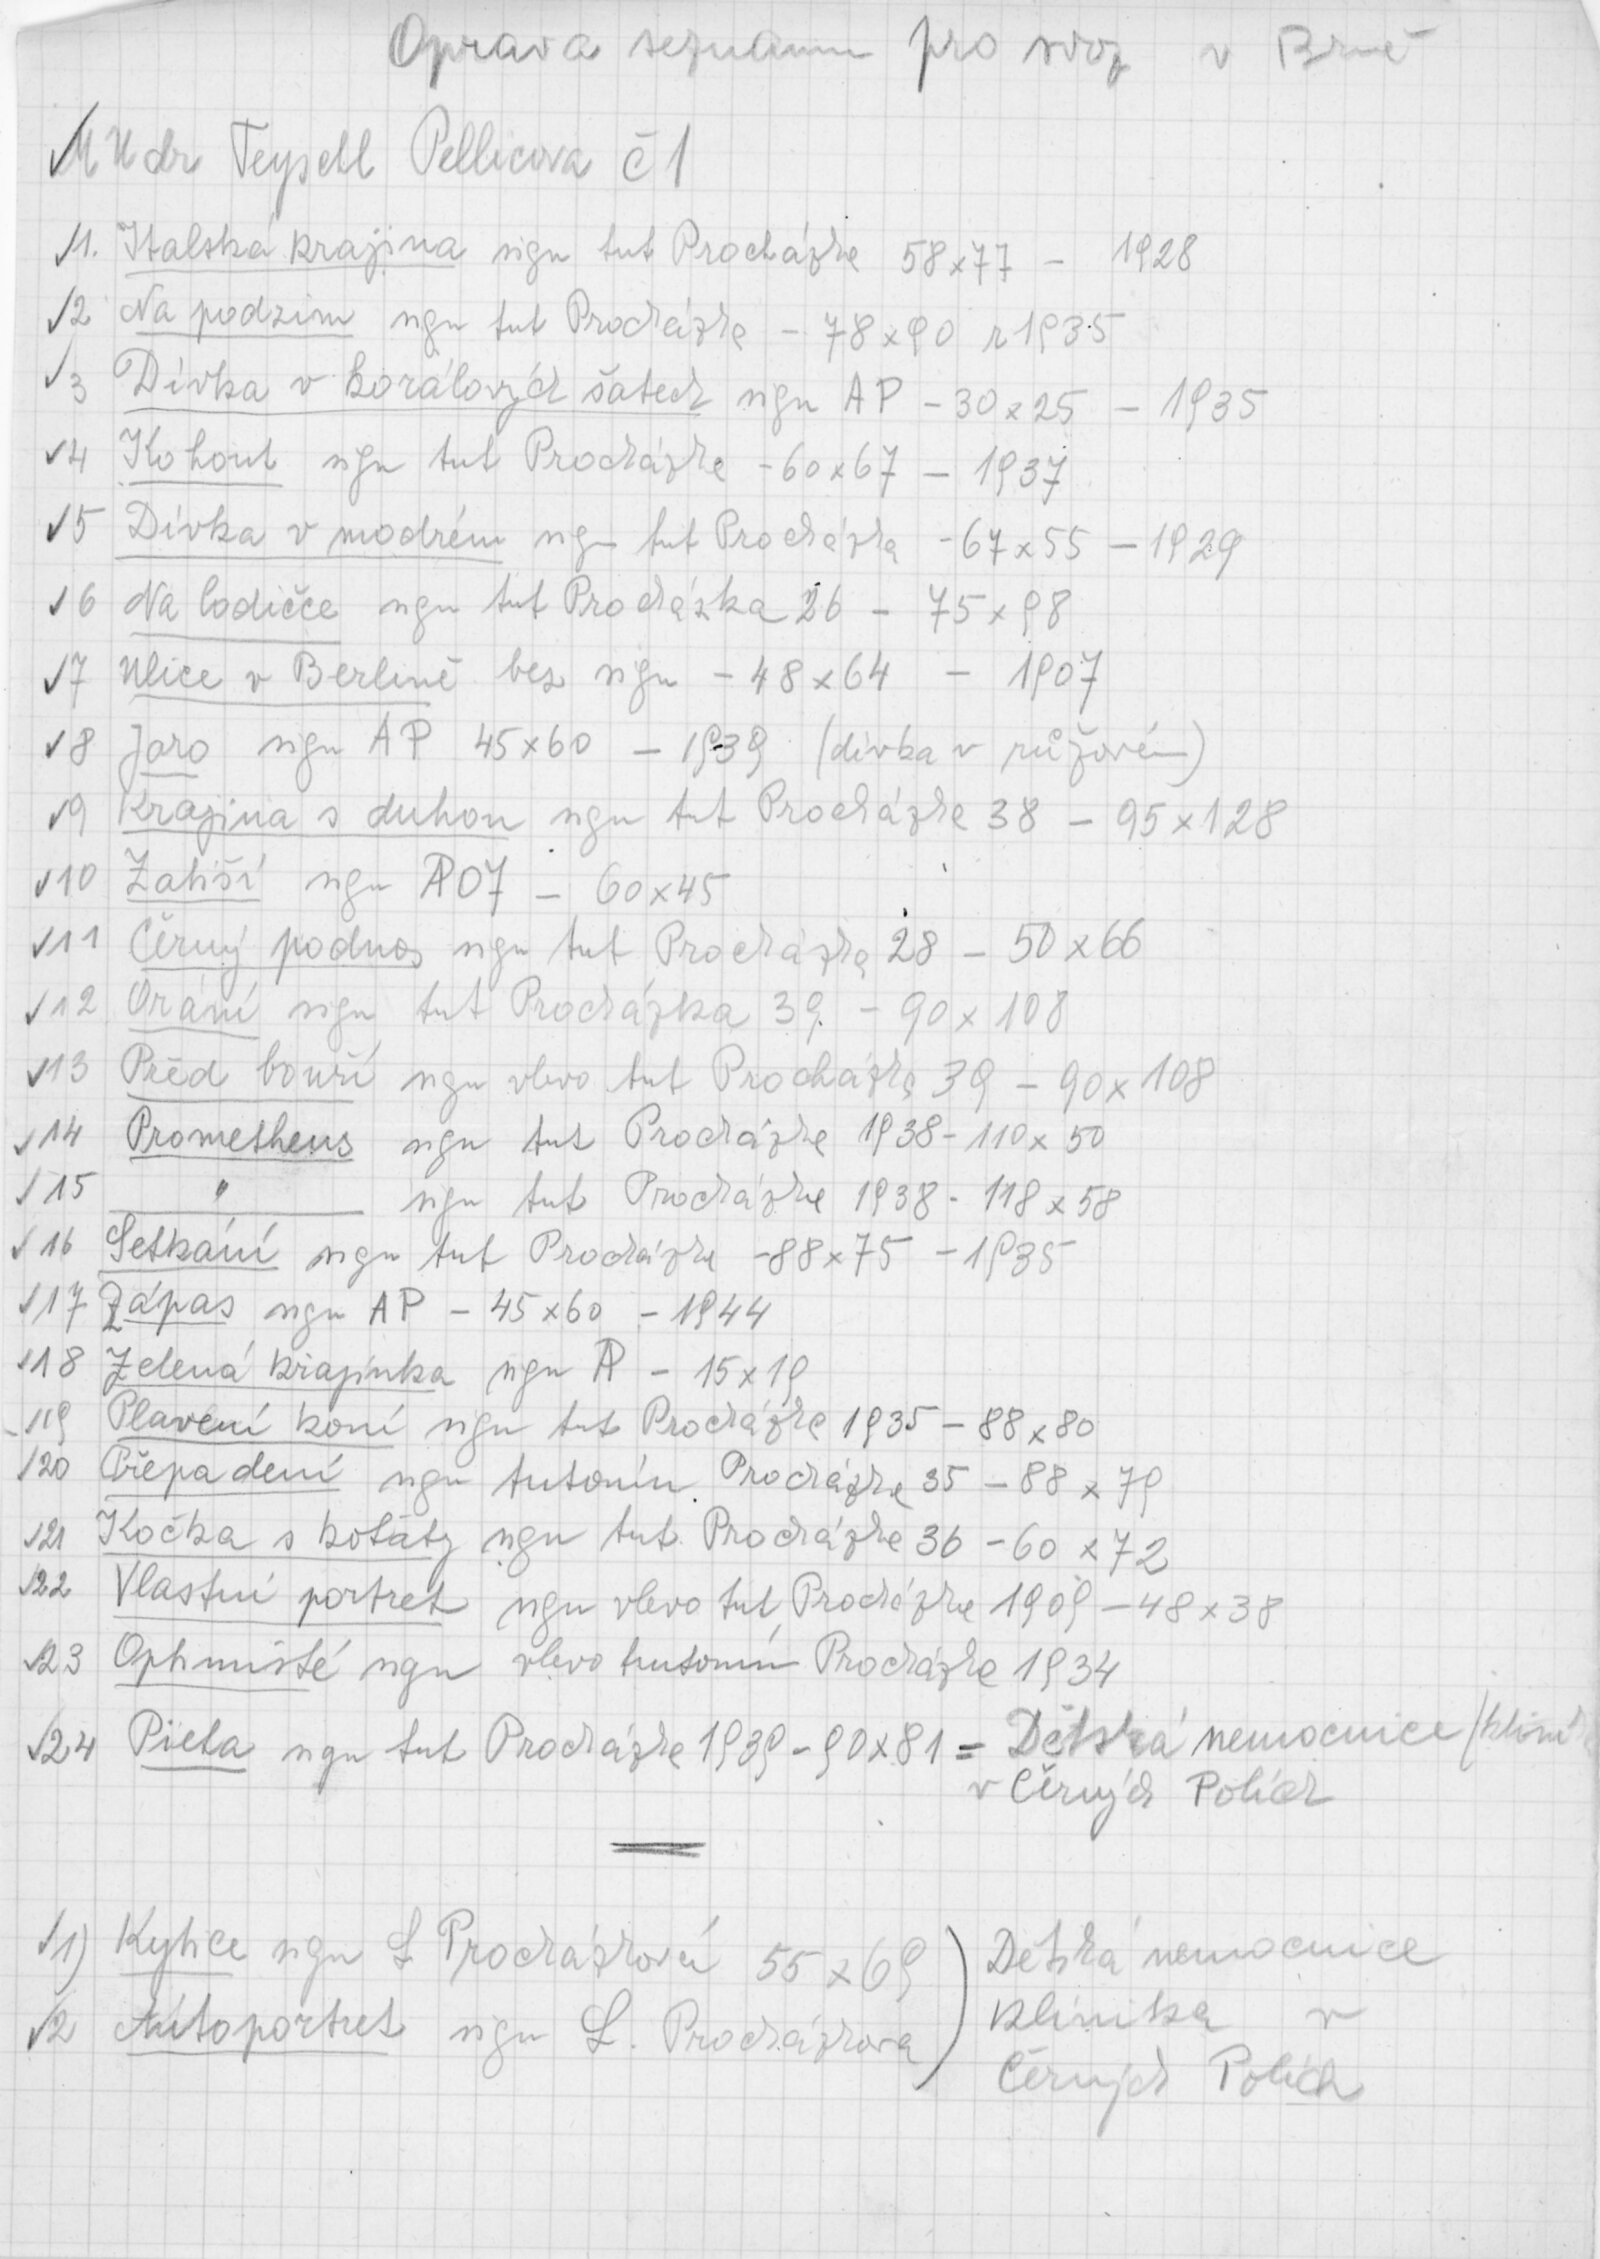 Oprava seznamu pro svoz v Brně
MUdr Teyschl Pellicova č 1
1. Italská krajina sign Ant Procházka 58x77 - 1928
2 Na podzim sign Ant Procházka - 78x90 r 1935
3 Dívka v korálových šatech sign AP - 30x25 - 1935
4 Kohout sign Ant Procházka - 60x67 - 1937
5 Dívka v modrém sign Ant Procházka - 67x55 - 1929
6 Na lodičce sign Ant Procházka 26 - 75x98
7 Ulice v Berlině bez sign - 48x64 - 1907
8 Jaro sign AP 45x60 - 1939 (dívka v růžovém)
9 Krajina s duhou sign Ant Procházka 38 - 95x128
10 Zátiší sign AP 07 - 60x45
11 Černý podnos sign Ant Procházka 28 - 50x66
12 Orání sign Ant Procházka 39 - 90x108
13 Před bouří sign vlevo Ant Procházka 39 - 90x108
14 Prometheus sign Ant Procházka 1938 - 110x50
15 " sign Ant Procházka 1938 - 118x58
16 Setkání sign Ant Procházka - 88x75 - 1935
17 Zápas sign AP - 45x60 - 1944
18 Zelená krajinka sign AP - 15x19
19 Plavení koní sign Ant Procházka 1935 - 88x80
20 Přepadení sign Antonín Procházka 35 - 88x79
21 Kočka s koťaty sign Ant Procházka 36 - 60x72
22 Vlastní portret sign vlevo Ant Procházka 1909 - 48x38
23 Optimisté sign vlevo Antonín Procházka 1934
24 Pieta sign Ant Procházka 1939 - 90x81 = Dětská nemocnice (klinika
v Černých Polích
1) Kytice sign L Procházková 55x69 ) Dětská nemocnice
2 Autoportret sign L. Procházková klinika v
Černých Polích